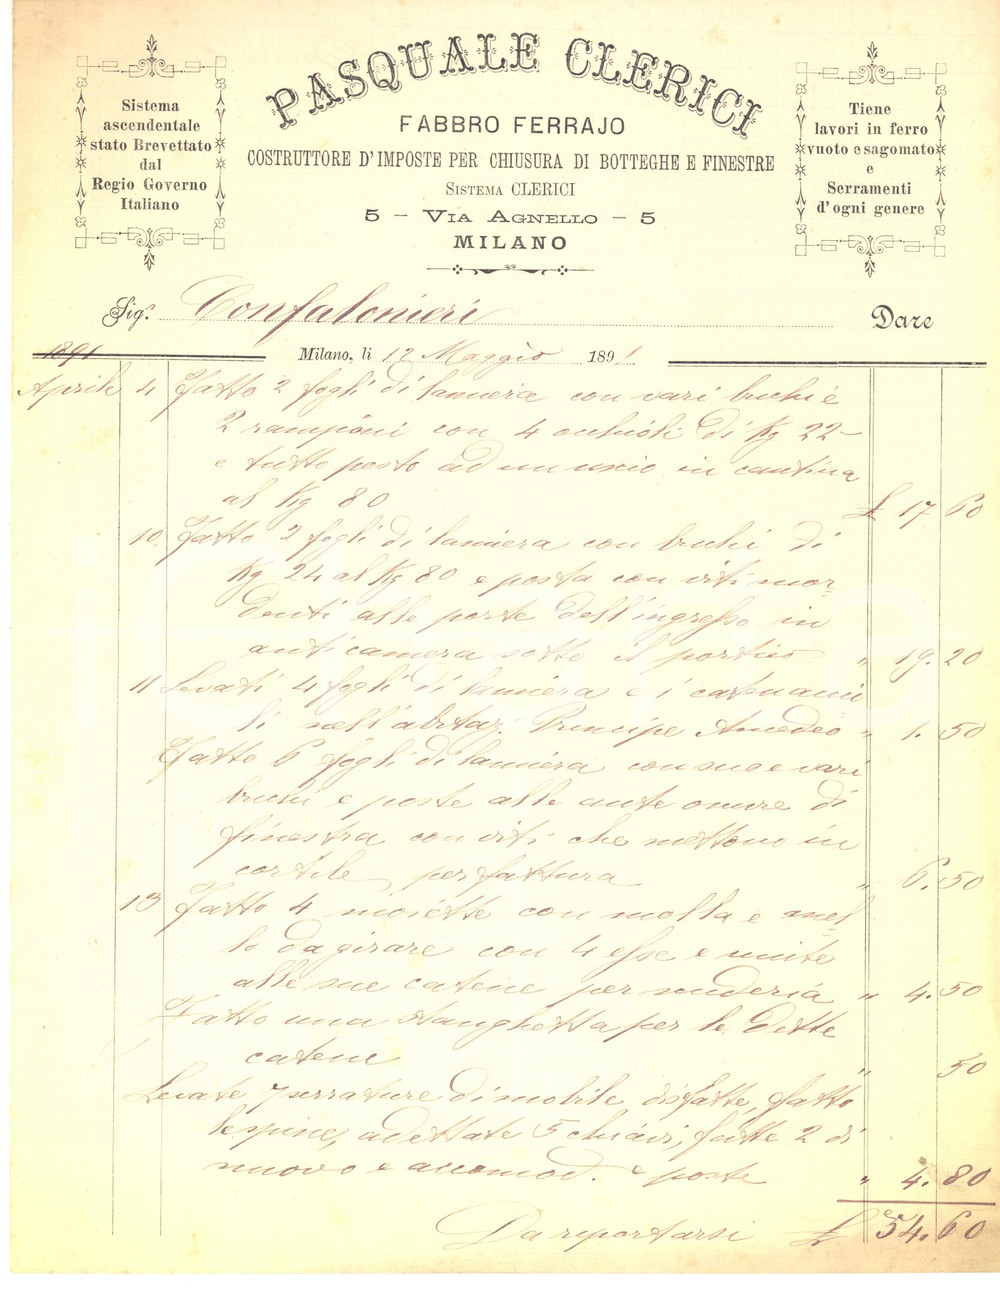 PASQUALE CLERICI
FABBRO FERRAJO
COSTRUTTORE D'IMPOSTE PER CHIUSURA DI BOTTEGHE E FINESTRE
SISTEMA CLERICI
5 – VIA AGNELLO – 5
MILANO
Sistema
ascendentale
stato Brevettato
dal
Regio Governo
Italiano
Tiene
lavori in ferro
vuoto e sagomato
e
Serramenti
d'ogni genere
Sig.r Confalonieri Dare
1891 Milano, li 12 Maggio 1891
Aprile 4 Fatto 2 fogli di lamiera con vari buchi e
2 ramponi con 4 ochioli di Kg 22 –
e tutto posto ad un uscio in cantina
al Kg 80 £ 17 60
10 Fatto 2 fogli di lamiera con buchi di
Kg 24 al Kg 80 e posta con viti mor-
denti alle porte dell'ingresso in
anticamera sotto il portico " 19. 20
11 Levati 4 fogli di lamiera e i catenacci
li nell'abitaz. Principe Amedeo " 1. 50
Fatto 6 fogli di lamiera con suoi vari
buchi e poste alle ante oscure di
finestra con viti che mettono in
cortile, per fattura " 6. 50
13 Fatto 4 moiette con molla e anel-
lo da girare con 4 esse e unite
alle sue catene per scuderia " 4. 50
Fatto una stanghetta per le dette
catene " 50
Levate 7 serrature di mobile disfatte, fatto
le spine, adettate 5 chiavi, fatte 2 di
nuovo e accomod. e poste " 4. 80
Da riportarsi £ 54. 60